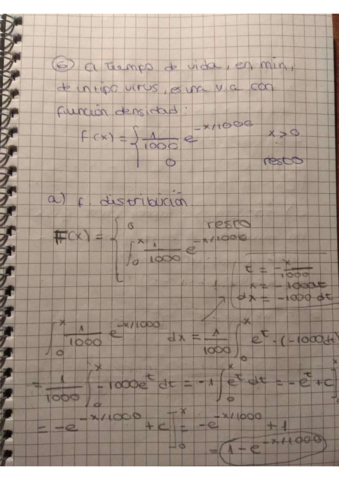 ⑥ El tiempo de vida, en min,
de un tipo virus, es una v.a con
función densidad:
f(x) = { 1/1000 e^(-x/1000) x>0
0 resto
a) f. distribución
F(x) = { 0 resto
∫₀ˣ 1/1000 e^(-x/1000)
t = -x/1000
x = -1000t
dx = -1000 dt
∫₀ˣ 1/1000 e^(-x/1000) dx = 1/1000 ∫₀ˣ e^t · (-1000dt)
= 1/1000 ∫₀ˣ -1000e^t dt = -1 ∫₀ˣ e^t dt = -e^t + c]
= -e^(-x/1000) + c]₀ˣ = -e^(-x/1000) + 1
= 1 - e^(-x/1000)